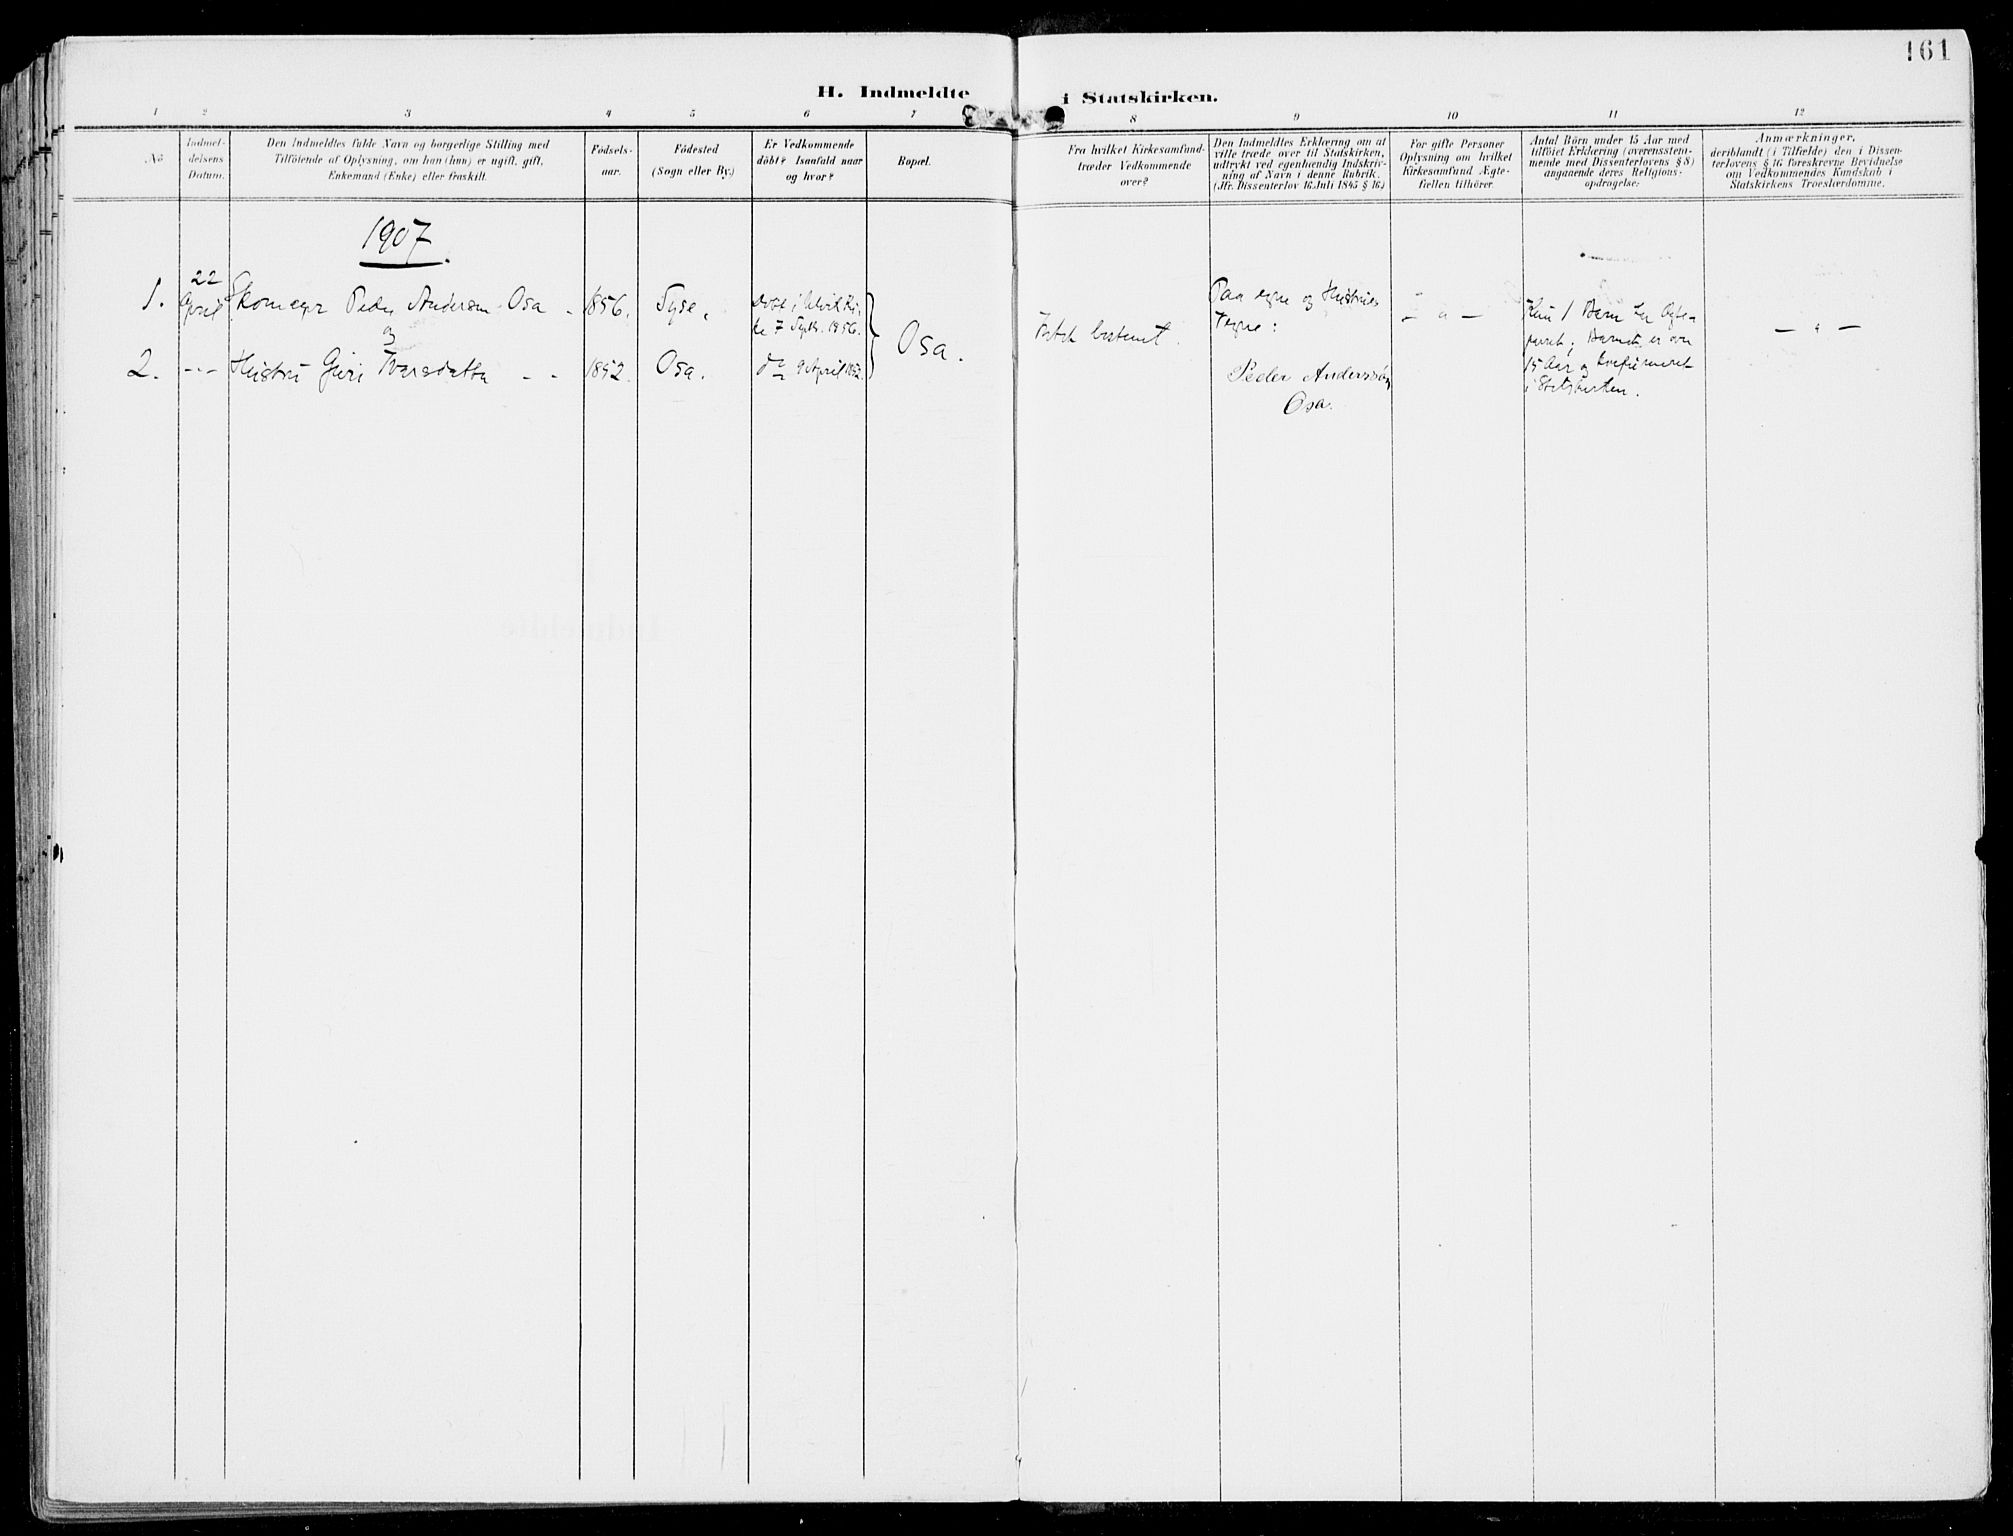 161
H. Indmeldte i Statskirken.
1 2 3 4 5 6 7 8 9 10 11 12
No
Indmel-
delsens
Datum.
Den Indmeldtes fulde Navn og borgerlige Stilling med
Tilföiende af Oplysning, om han (hun) er ugift, gift,
Enkemand (Enke) eller fraskilt.
Födsels-
aar.
Födested
(Sogn eller By.)
Er Vedkommende
döbt? Isaafald naar
og hvor?
Bopæl.
Fra hvilket Kirkesamfund
træder Vedkommende
over?
Den Indmeldtes Erklæring om at
ville træde over til Statskirken,
udtrykt ved egenhændig Indskriv-
ning af Navn i denne Rubrik.
(Jfr. Dissenterlov 16 Juli 1845 § 16.)
For gifte Personer
Oplysning om hvilket
Kirkesamfund Ægte-
fællen tilhörer.
Antal Börn under 15 Aar med
tilföiet Erklæring (overensstem-
mende med Dissenterlovens § 8)
angaaende deres Religions-
opdragelse:
Anmærkninger,
deriblandt (i Tilfælde) den i Dissen-
terlovens § 16 foreskrevne Bevidnelse
om Vedkommendes Kundskab i
Statskirkens Troeslærdomme.
1907.
1.
22
April
Skomager Peder Anderson Osa -
og
1856.
Syse.
Döbt i Ulvik Kir-
ke 7 Septb. 1856.
Osa.
bestemt.
Paa egne og Hustrues
Vegne:
Peder Anderssøn
Osa.
- " -
Kun 1 Barn
; Barnet er over
15 Aar og konfirmeret
i Statskirken.
- " -
2.
---
Hustru Guri Ivarsdatter - -
1852.
Osa.
do 9 April 1852.